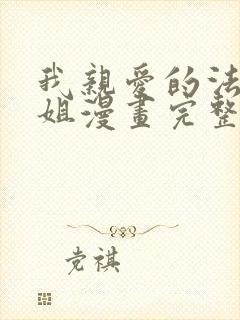 我親愛的法
姐漫畫完整
党祺